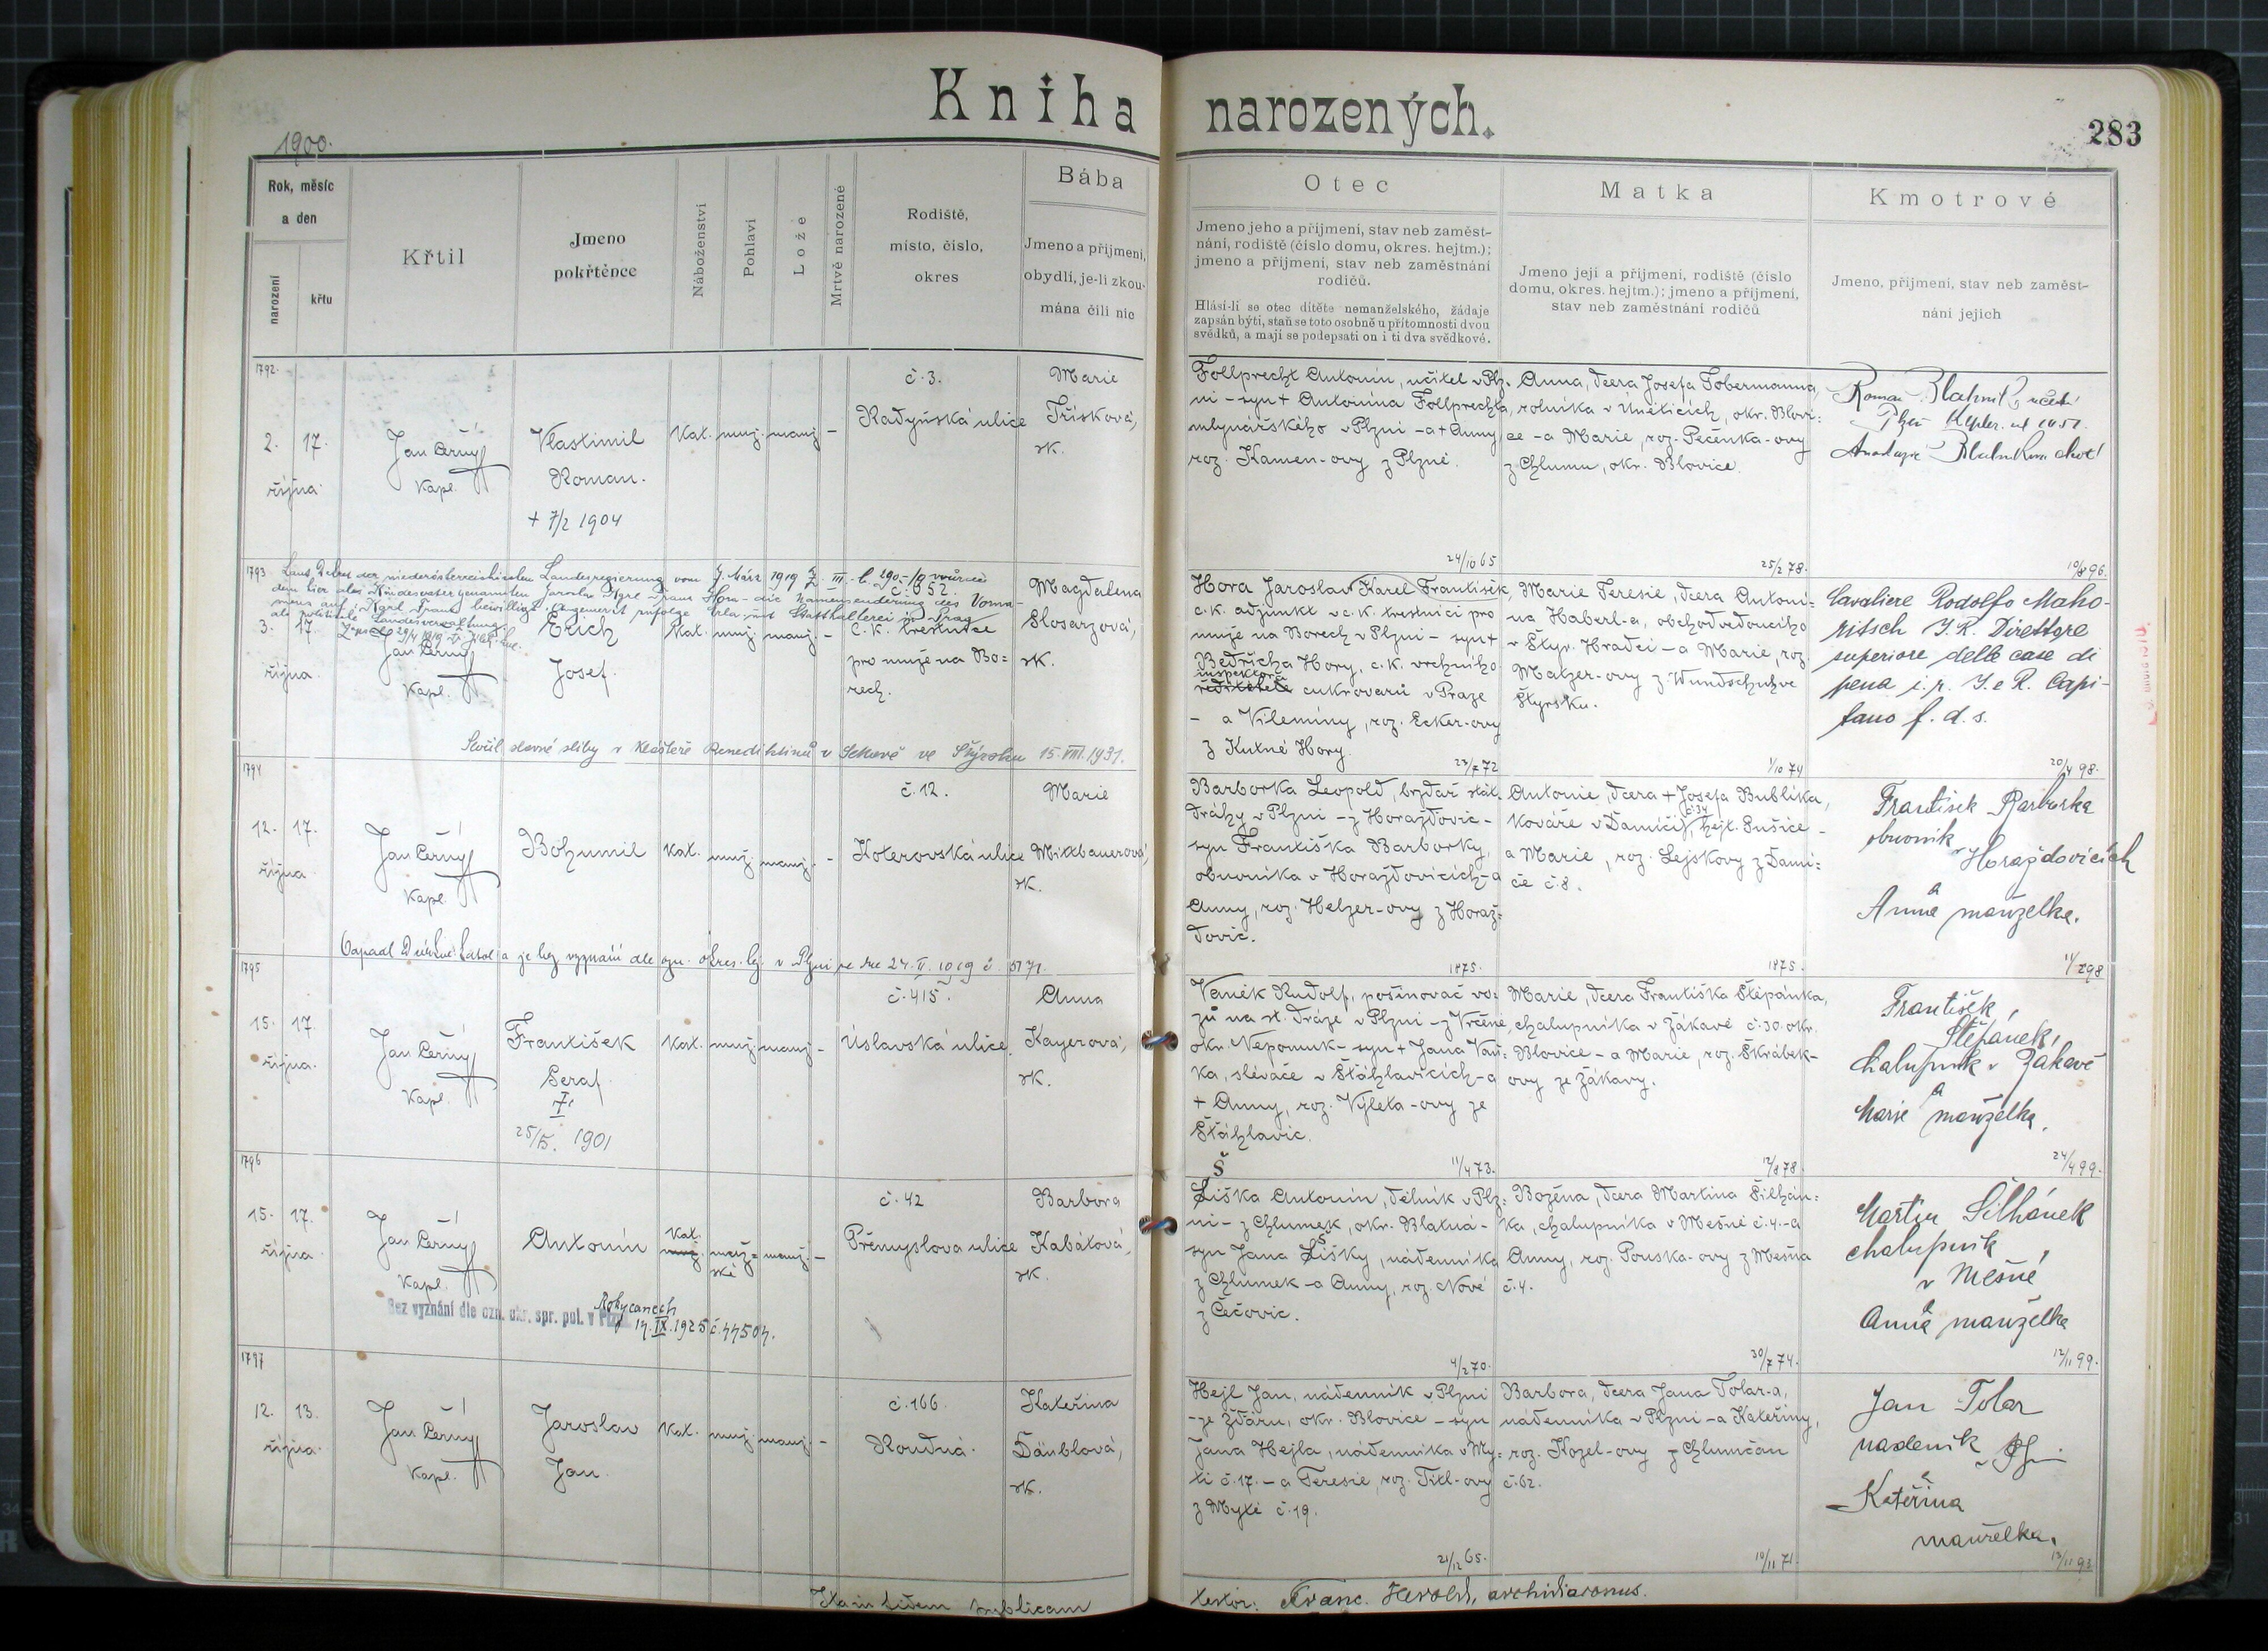 Kniha narozených.
283
1900.
Rok, měsíc
a den
narození
křtu
Křtil
Jmeno
pokřtěnce
Náboženství
Pohlaví
Lože
Mrtvě narozené
Rodiště,
místo, číslo,
okres
Bába
Jmeno a příjmení,
obydlí, je-li zkou-
mána čili nic
Otec
Jmeno jeho a příjmení, stav neb zaměst-
nání, rodiště (číslo domu, okres. hejtm.);
jmeno a příjmení, stav neb zaměstnání
rodičů.
Hlásí-li se otec dítěte nemanželského, žádaje
zapsán býti, staň se toto osobně u přítomnosti dvou
svědků, a mají se podepsati on i ti dva svědkové.
Matka
Jmeno její a příjmení, rodiště (číslo
domu, okres. hejtm.); jmeno a příjmení,
stav neb zaměstnání rodičů
Kmotrové
Jmeno, příjmení, stav neb zaměst-
nání jejich
1792.
2. 17.
října
Jan Černý
Kapl.
Vlastimil
Roman.
+ 7/2 1904
Kat. muž. manž. -
č. 3.
Radyňská ulice
Marie
Třísková,
zk.
Follprecht Antonín, učitel v Plz-
ni - syn + Antonína Follprechta,
mlynářského v Plzni - a + Anny,
roz. Kamen-ovy z Plzně.
24/10 65
Anna, dcera Josefa Tobermanna,
rolníka v Úněticích, okr. Blovi:
ce - a Marie, roz. Pečenka-ovy
z Chlumu, okr. Blovice.
25/2 78.
Roman Blahník, učitel
Plzeň
10/8 96.
1793
Laut Dekret der niederösterreichischen Landesregierung vom 7. März 1919
3. 17.
října
Jan Černý
Kapl.
Erich
Josef.
Kat. muž. manž. -
č. 652.
C. k. trestnice
pro muže na Bo:
rech.
Magdalena
Slosarzová,
zk.
Hora Jaroslav Karel František,
c. k. adjunkt v c. k. trestnici pro
muže na Borech v Plzni - syn +
Bedřicha Hory, c. k. vrchního
inspektora
ředitele cukrovarů v Praze
- a Vilemíny, roz. Ecker-ovy
z Kutné Hory.
23/7 72
Marie Teresie, dcera Antoni:
na Haberl-a, obchodvedoucího
v Štyr. Hradci - a Marie, roz.
Matzer-ovy z Wundschuhve
Štyrsku.
1/10 74
Cavaliere Rodolfo Maho-
ritsch I. R. Direttore
superiore delle case di
pena i. p. I. e R. Capi-
tano f. d. s.
20/4 98.
Složil slavné sliby v klášteře Benediktinů v Sekavě ve Štýrsku 15. VIII. 1931.
1794
12. 17.
října
Jan Černý
Kapl.
Bohumil
Kat. muž. manž. -
č. 12.
Koterovská ulice
Marie
Mixbauerová,
zk.
Barborka Leopold, brzdař stát.
dráhy v Plzni - z Horažďovic -
syn Františka Barborky,
obuvníka v Horažďovicích - a
Anny, roz. Helzer-ovy z Horaž:
ďovic.
1875.
Antonie, dcera + Josefa Bublíka,
kováře v Damíči č. 34, hejt. Sušice -
a Marie, roz. Lejskovy z Damí:
če č. 8.
1875.
František Barborka
obuvník
v Horažďovicích
a
Anna manželka.
11/2 98
Vypadl z církve katol. a je bez vyznání dle ozn. okres. hej. v Plzni ze dne 24. II. 1919 č.
1795
15. 17.
října.
Jan Černý
Kapl.
František
Seraf.
+
25/5. 1901
Kat. muž. manž. -
č. 415.
Úslavská ulice.
Anna
Kayerová,
zk.
Vaněk Rudolf, pošinovač vo:
zů na st. dráze v Plzni - z Vrčeně,
okr. Nepomuk - syn + Jana Vaň:
ka, slévače v Šťáhlavicích - a
+ Anny, roz. Výleta-ovy ze
Šťáhlavic.
11/4 73.
Marie, dcera Františka Štěpánka,
chalupníka v Žákavé č. 30. okr.
Blovice - a Marie, roz. Škrábek-
ovy ze Žákavy.
12/8 78.
František
Štěpánek,
chalupník v Žákavé
a
Marie manželka.
24/4 99.
1796
15. 17.
října
Jan Černý
Kapl.
Antonín
Kat.
muž. muž= manž. -
ské
č. 42
Přemyslova ulice
Barbora
Kabátová,
zk.
Š
Šiška Antonín, dělník v Plz=
ni - z Chlumek, okr. Blatná -
syn Jana Šišky, nádenníka
z Chlumek - a Anny, roz. Nové
z Čečovic.
4/2 70.
Božena, dcera Martina Šilhán:
ka, chalupníka v Mešně č. 4. - a
Anny, roz. Pouska-ovy z Mešna
č. 4.
30/7 74.
Martin Šilhánek
chalupník
v Mešně
a
Anna manželka
12/11 99.
Bez vyznání dle ozn. okr. spr. pol. v Plzni
Rokycanech
17. IX. 1925 č. 44504.
1797
12. 13.
října
Jan Černý
Kapl.
Jaroslav
Jan.
Kat. muž. manž. -
č. 166.
Roudná.
Kateřina
Däublová,
zk.
Hejl Jan, nádenník v Plzni
- ze Žďáru, okr. Blovice - syn
Jana Hejla, nádenníka v My:
ti č. 17. - a Teresie, roz. Titl-ovy
z Mytě č. 19.
21/12 65.
Barbora, dcera Jana Tolar-a,
nádenníka v Plzni - a Kateřiny,
roz. Kozel-ovy z Chlumčan
č. 62.
10/11 71.
Jan Tolar
nadeník
a
Kateřina
manželka.
13/11 93
Itam fidem publicam
testor: Franc. Herold, archidiaconus.